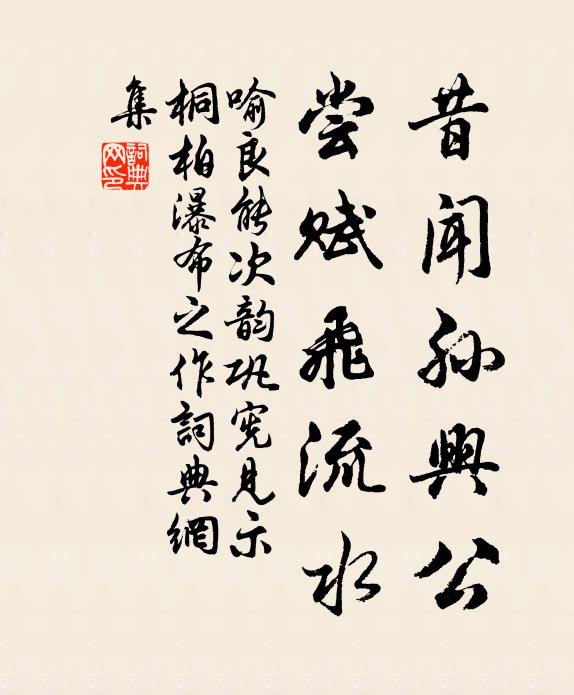 昔闻孙興公
尝赋飛流水
喻良能次韵巩宪見示
桐柏瀑布之作詞典網
集
詞典网印